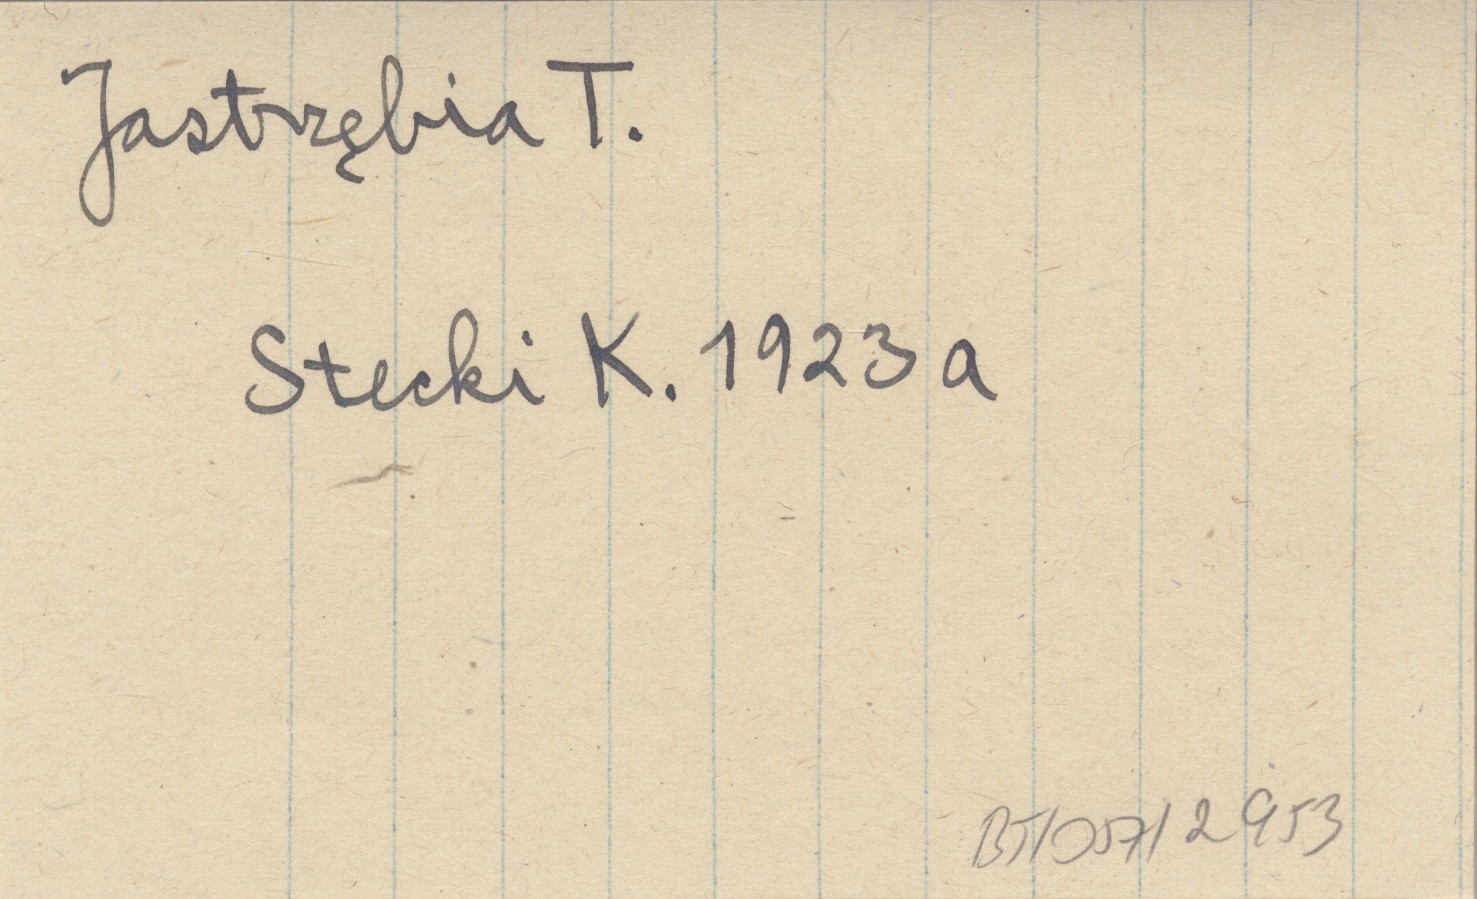 Jastrzębia T.
Stecki K. 1923 a
BT/057/2953